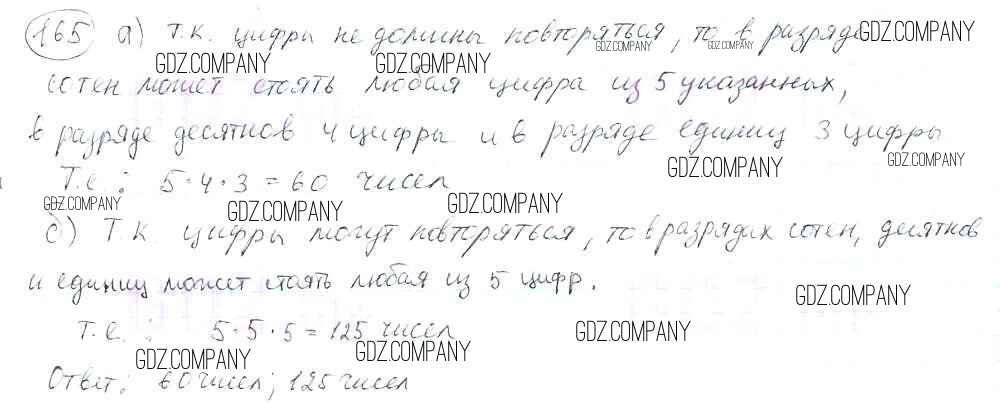 165 а) Т.к. цифры не должны повторяться, то в разряде GDZ.COMPANY
GDZ.COMPANY GDZ.COMPANY GDZ.COMPANY GDZ.COMPANY
сотен может стоять любая цифра из 5 указанных,
в разряде десятков 4 цифры и в разряде единиц 3 цифры
GDZ.COMPANY GDZ.COMPANY
Т.е.: 5·4·3=60 чисел
GDZ.COMPANY GDZ.COMPANY GDZ.COMPANY
б) Т.к. цифры могут повторяться, то в разрядах сотен, десятков
и единиц может стоять любая из 5 цифр.
GDZ.COMPANY
Т.е.: 5·5·5=125 чисел
GDZ.COMPANY GDZ.COMPANY GDZ.COMPANY
Ответ: 60 чисел; 125 чисел